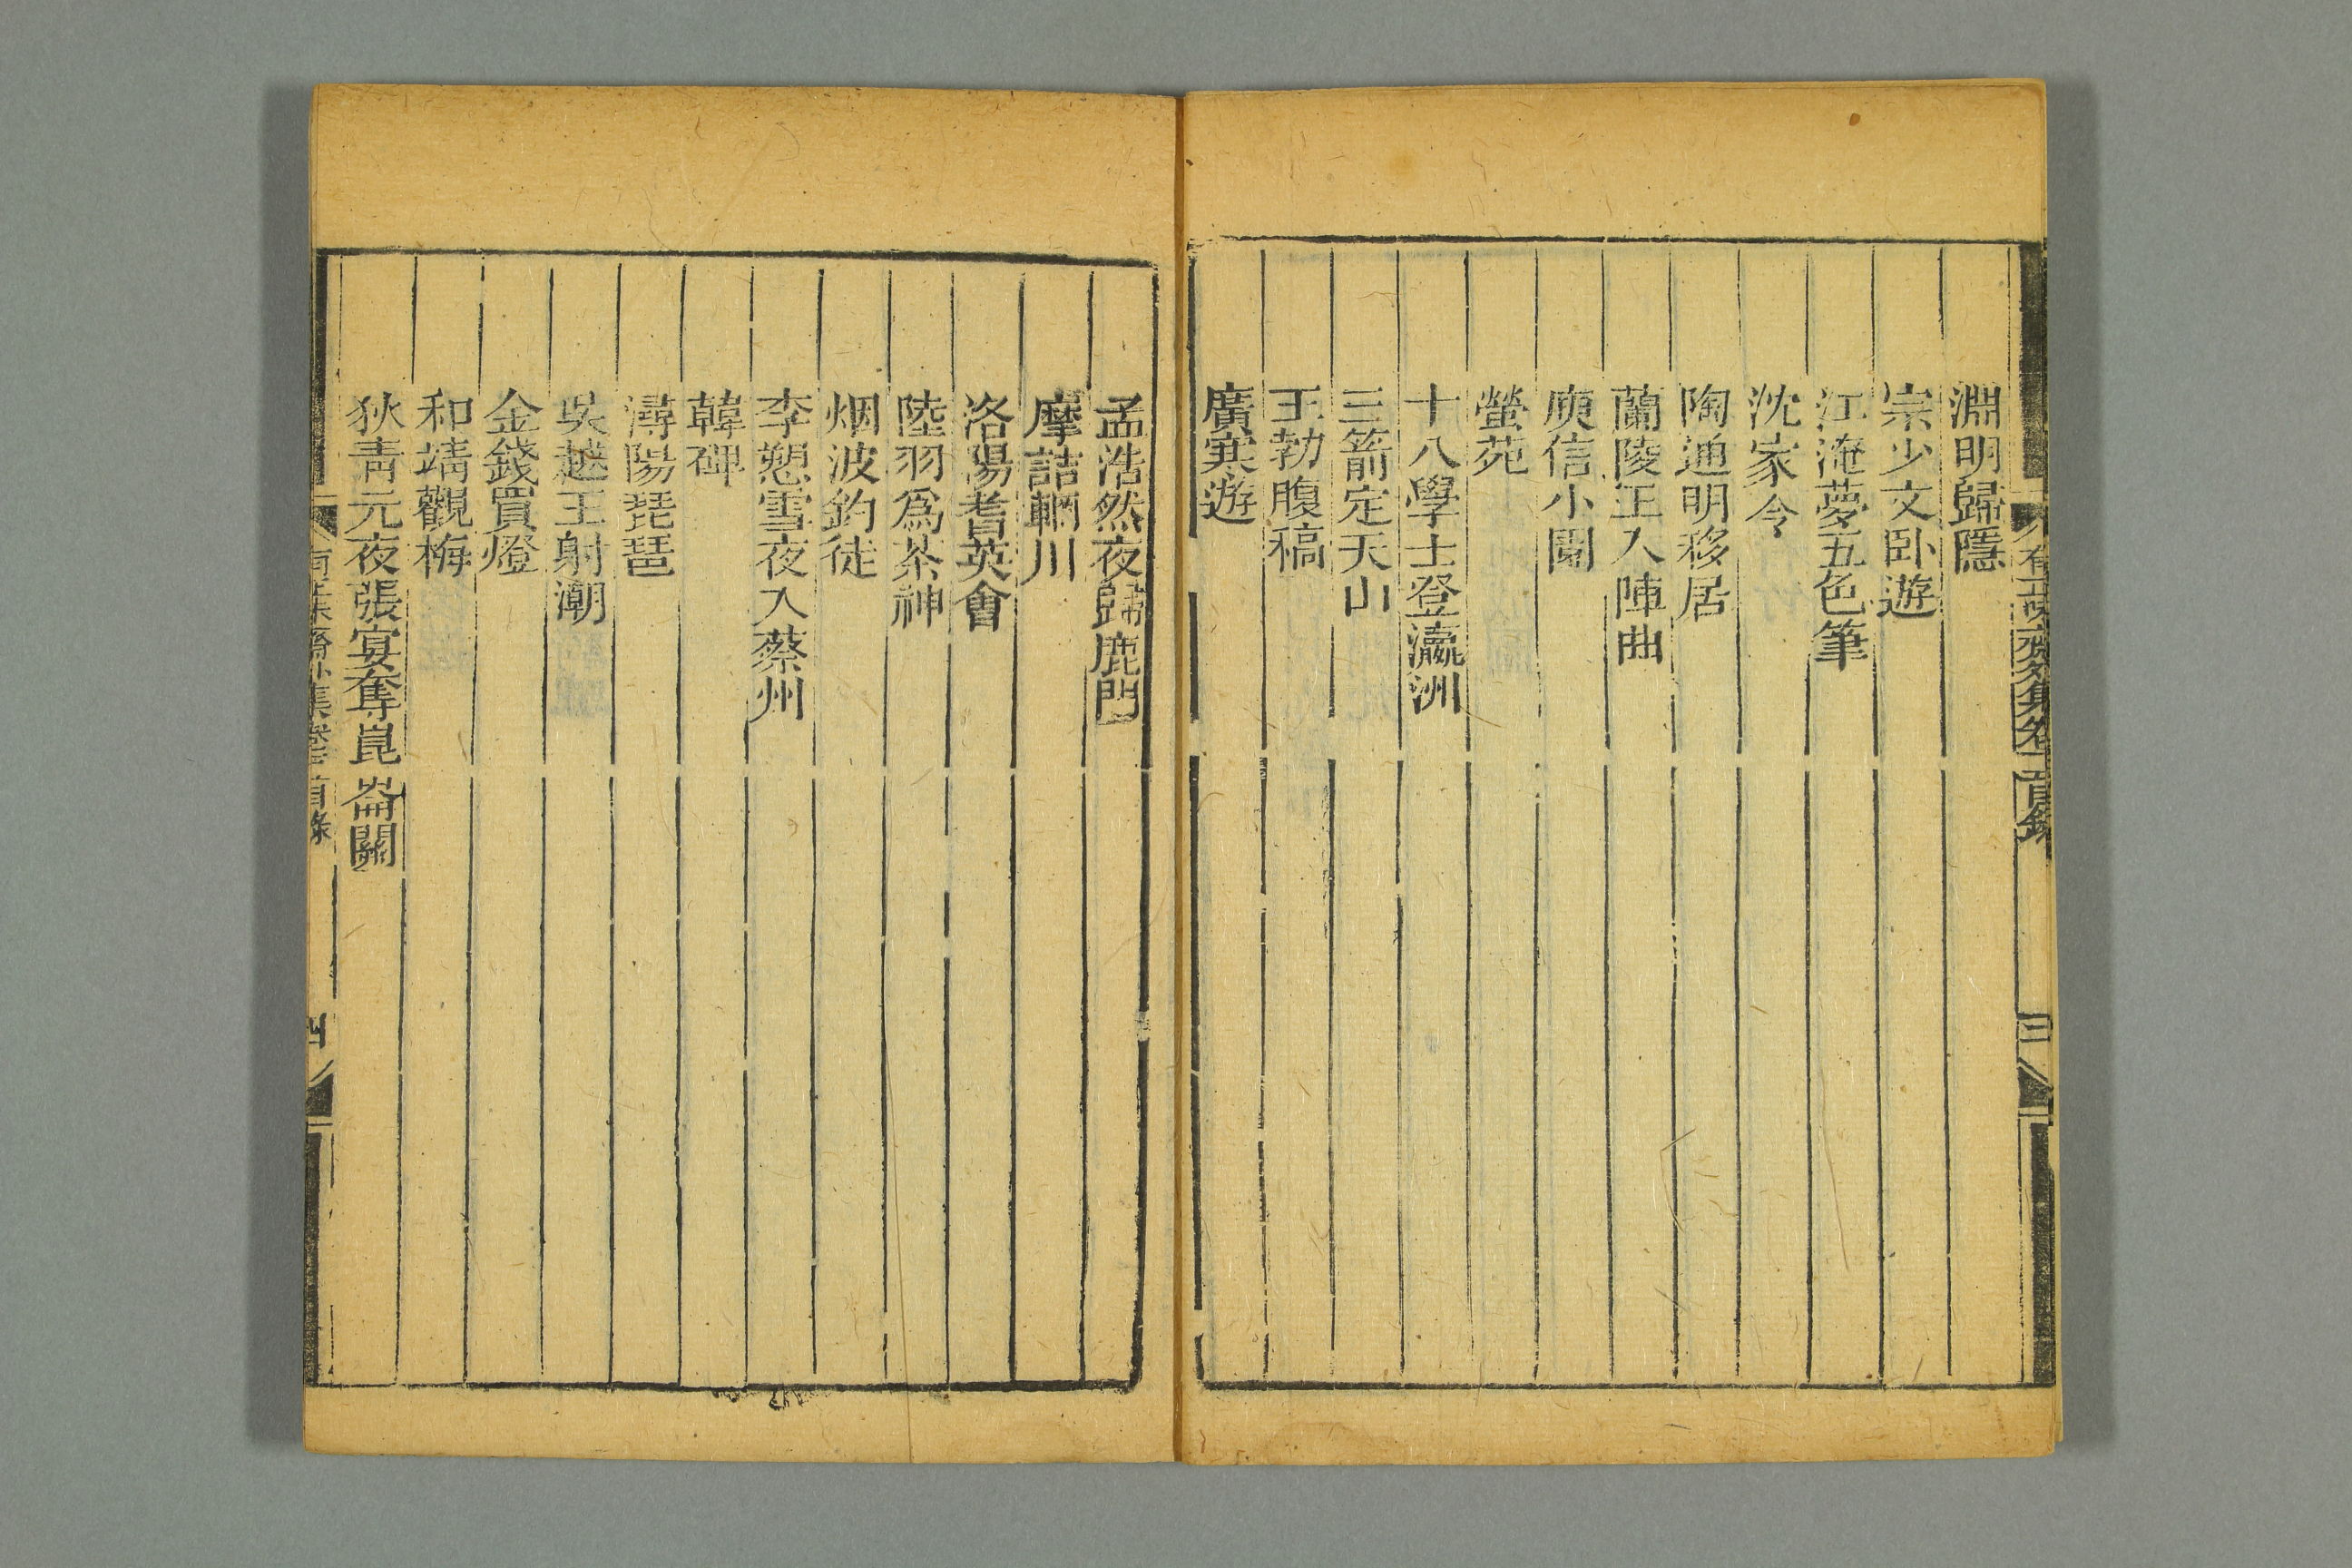 淵明歸隱
宗少文卧遊
江淹夢五色筆
沈家令
陶通明移居
蘭陵王入陣曲
庾信小園
螢苑
十八學士登瀛洲
三箭定天山
王勃腹稿
廣寒遊
三
孟浩然夜歸鹿門
摩詰輞川
洛陽耆英會
陸羽爲茶神
烟波釣徒
李愬雪夜入蔡州
韓碑
潯陽琵琶
吳越王射潮
金錢買燈
和靖觀梅
狄青元夜張宴奪崑崙關
四